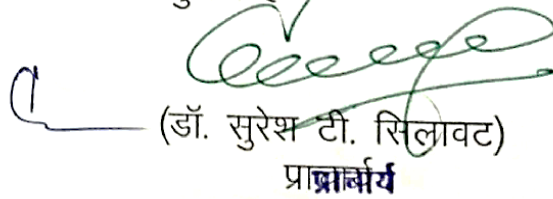 (डॉ. सुरेश टी. सिलावट)
प्राचार्य